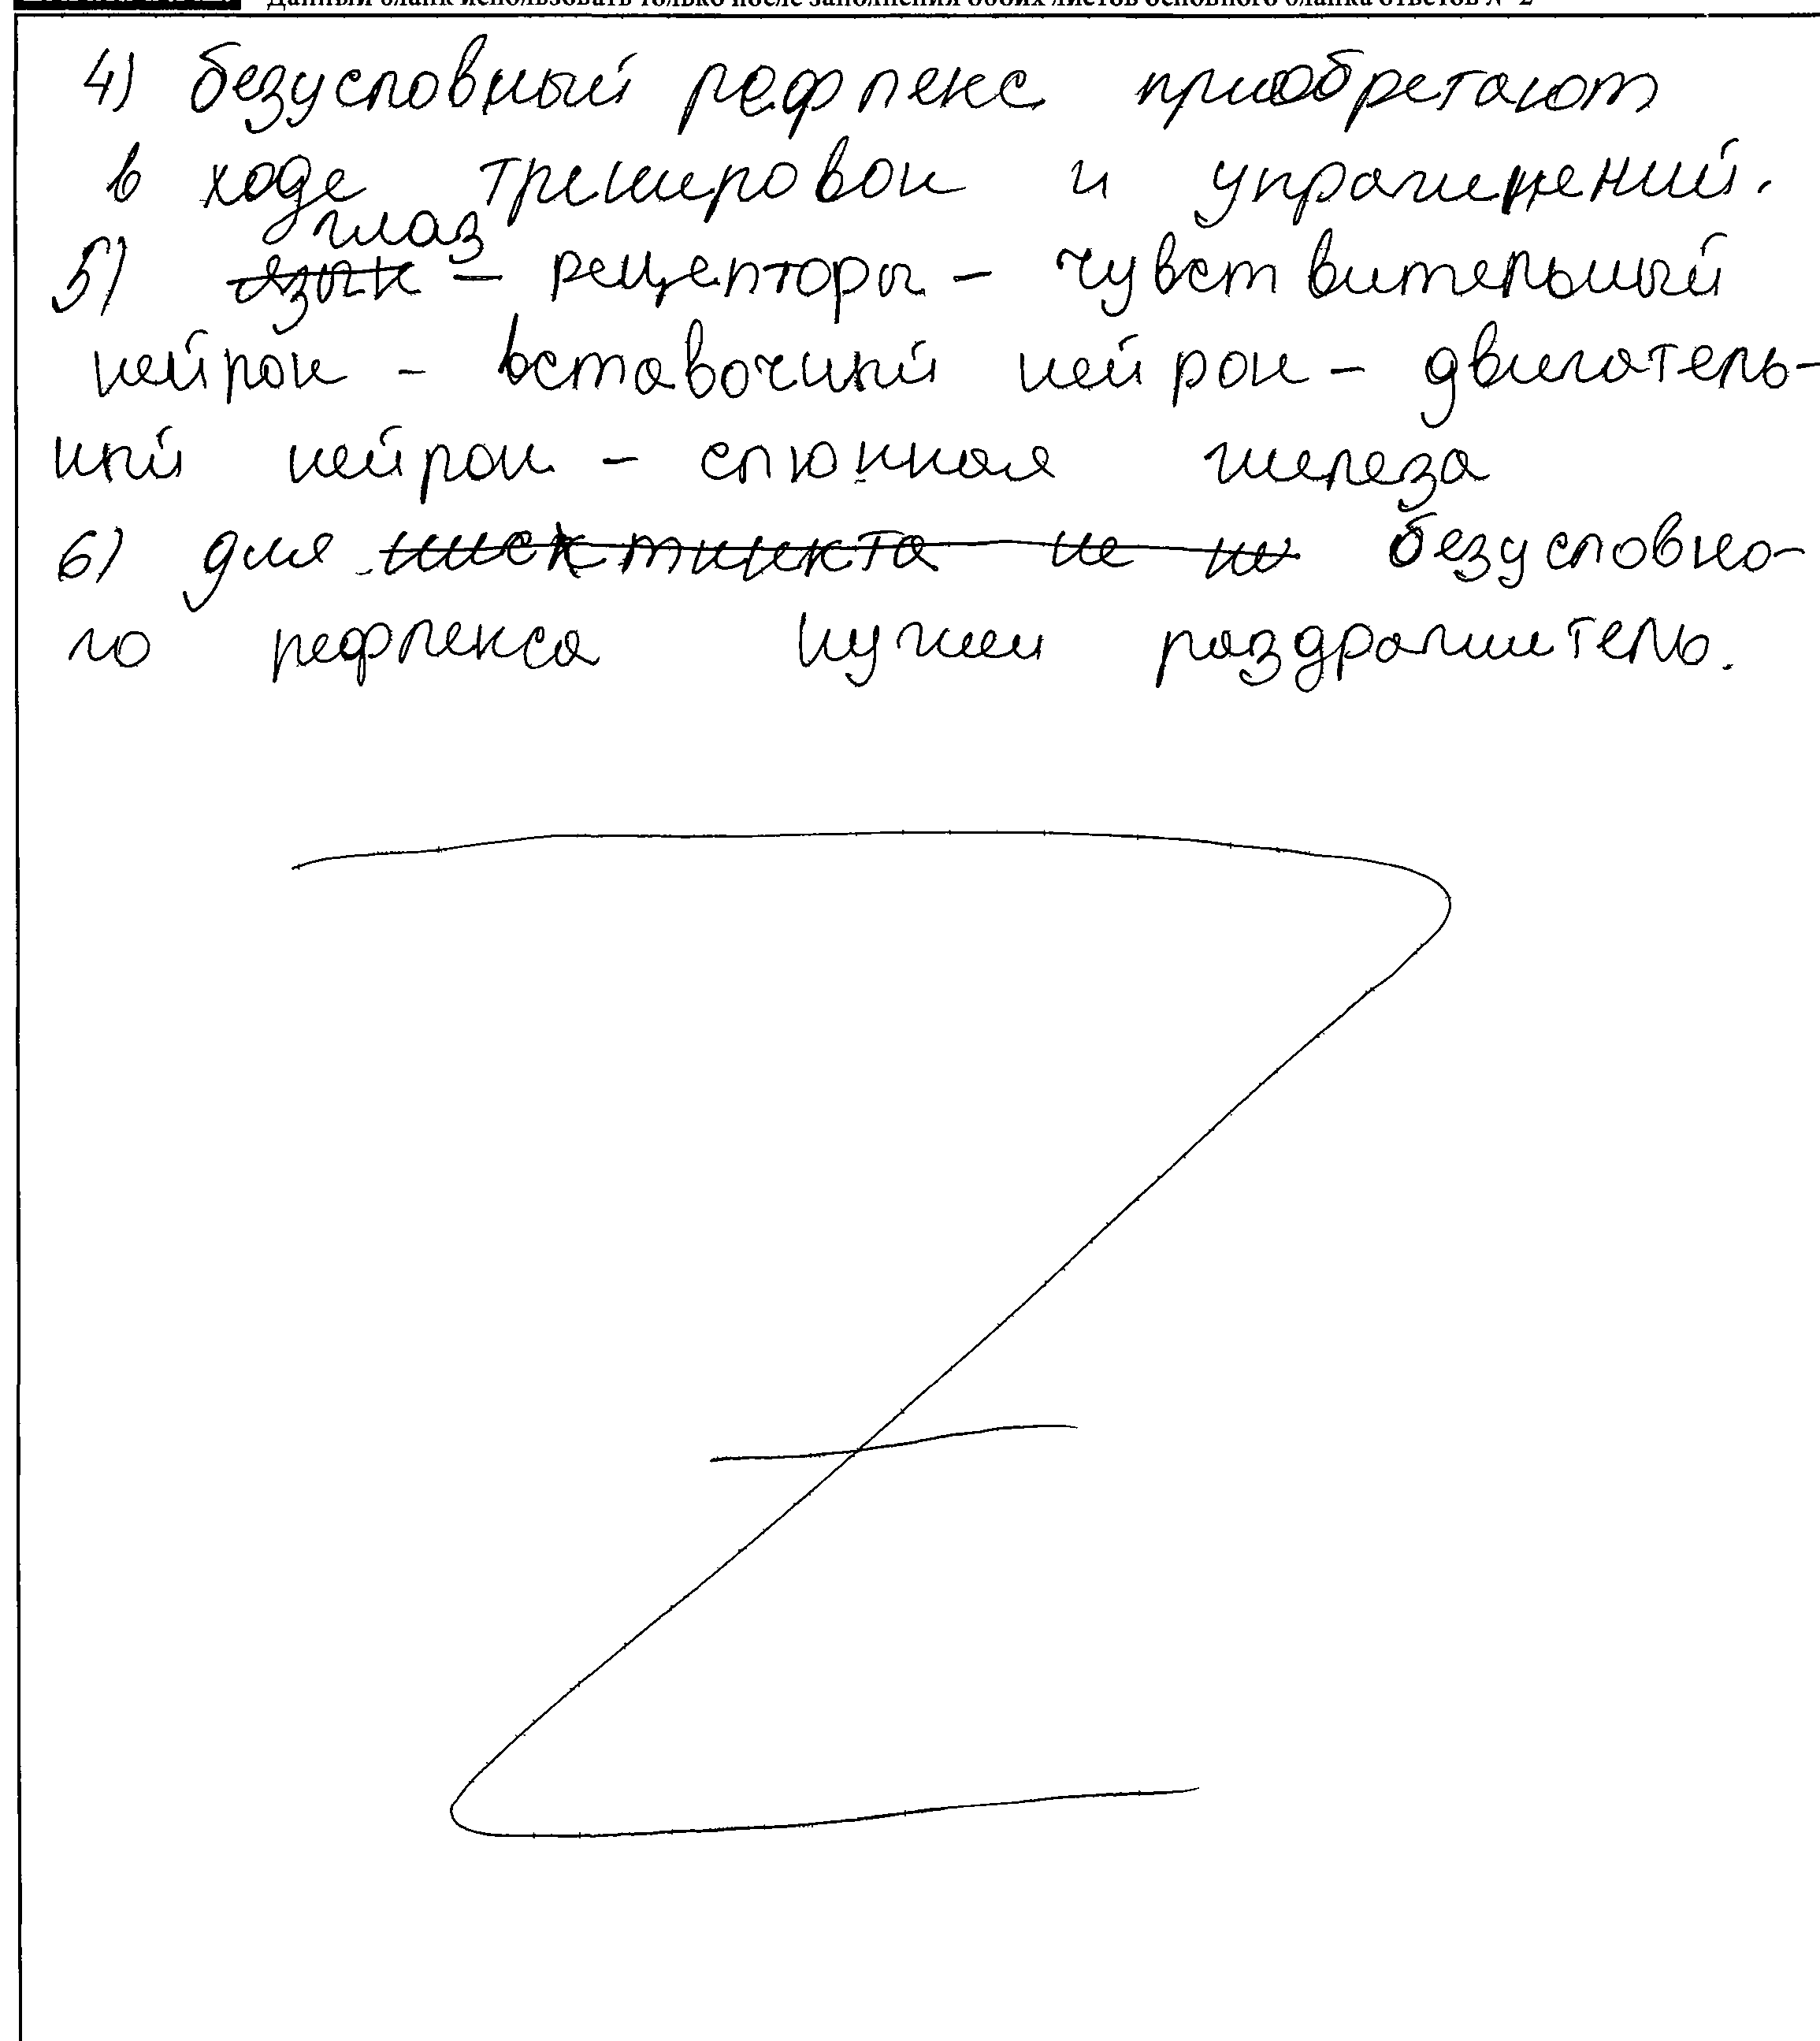 Данный бланк использовать только после заполнения обоих листов основного бланка ответов № 2
4) безусловный рефлекс приобретают
в ходе тренировок и упражнений.
глаз
5) язык – рецепторы – чувствительный
нейрон – вставочный нейрон – двигатель-
ный нейрон – слюнная железа
6) для инстинкта не не безусловно-
го рефлекса нужен раздражитель.
Z